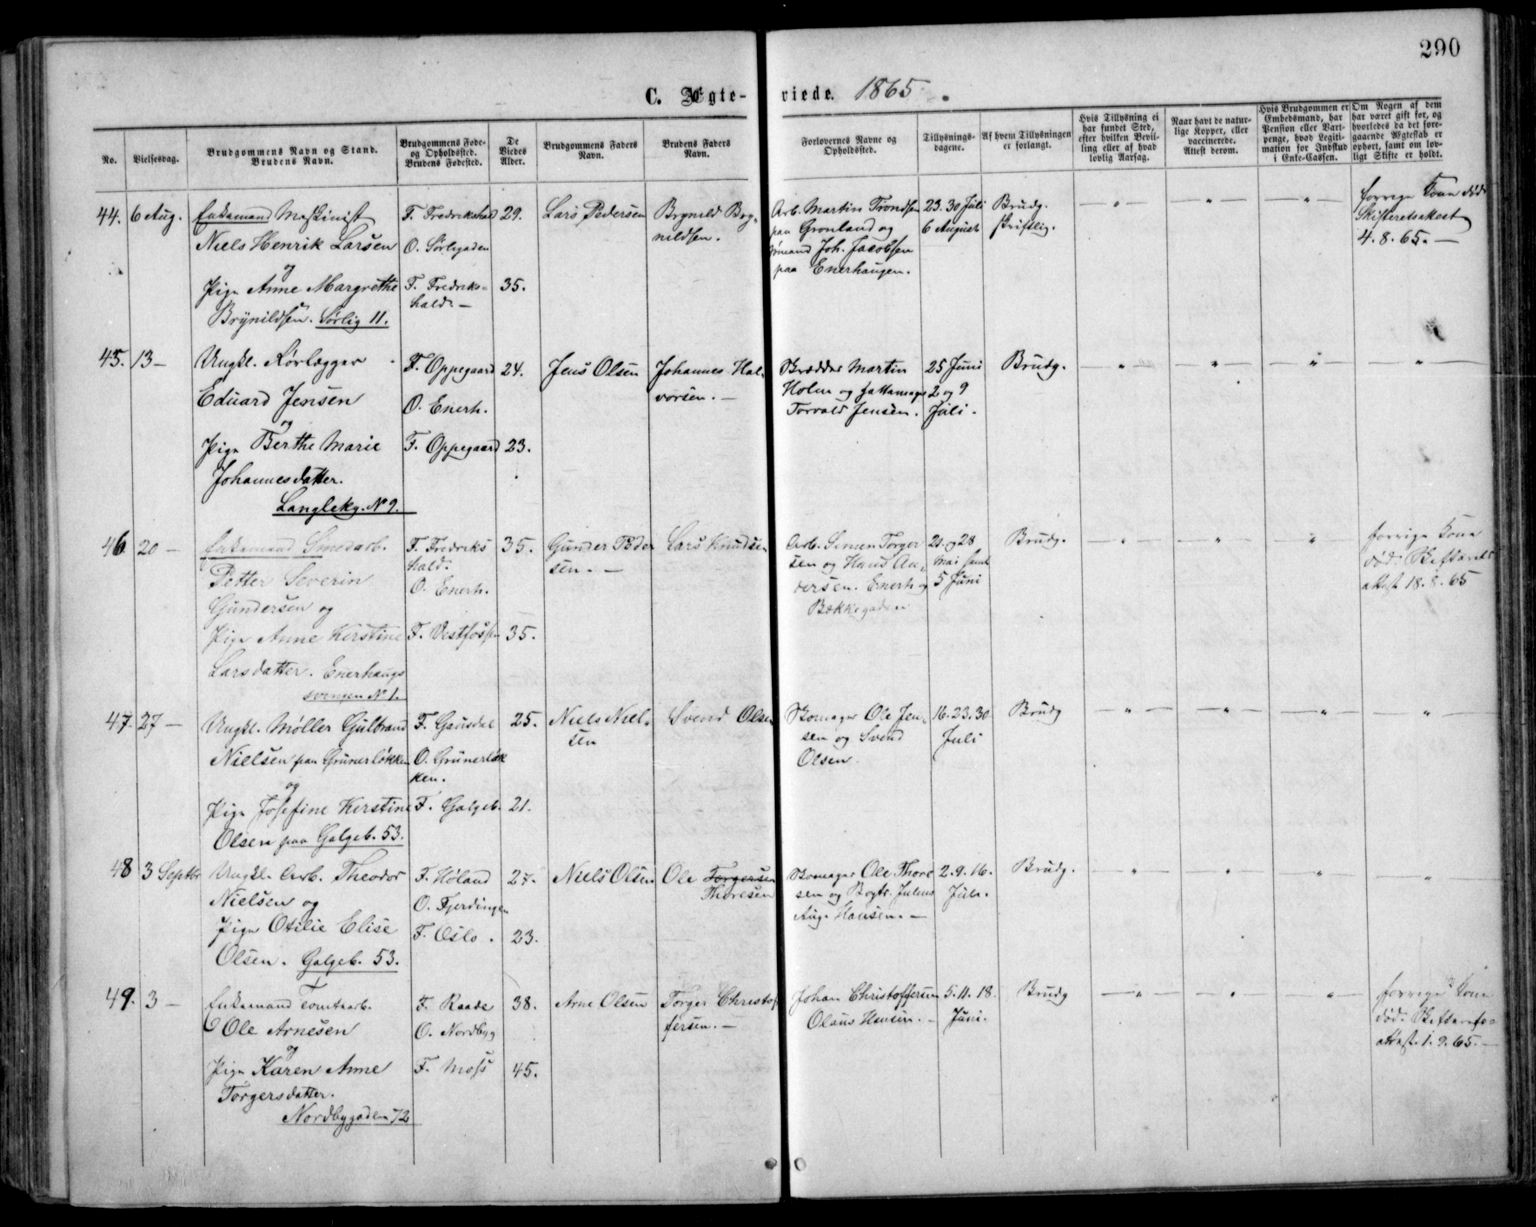 290
C. Ægte- viede. 1865.
No.
Vielsesdag.
Brudgommens Navn og Stand.
Brudens Navn.
Brudgommens Føde-
og Opholdssted.
Brudens Fødested.
De
Viedes
Alder.
Brudgommens Faders
Navn.
Brudens Faders
Navn.
Forlovernes Navne og
Opholdssted.
Tillysnings-
dagene.
Af hvem Tillysningen
er forlangt.
Hvis Tillysning ei
har fundet Sted,
efter hvilken Bevil-
ling eller af hvad
lovlig Aarsag.
Naar havt de natur-
lige Kopper, eller
vaccinerede.
Attest derom.
Hvis Brudgommen er
Embedsmand, har
Pension eller Vart-
penge, hvad Legiti-
mation for Indskud
i Enke-Cassen.
Om Nogen af dem
har været gift før, og
hvorledes da det fore-
gaaende Ægteskab er
ophørt, samt om lov-
ligt Skifte er holdt.
44. 6 Aug.
Enkemand Maskinist
Niels Henrik Larsen
og
Pige Anne Margrethe
Brynildsen. Sørlig 11.
F. Fredrikshald
O. Sørligaden
F. Fredriks-
hald. —
29.
35.
Lars Pedersen
Brynild Bry-
nildsen.
Arb. Martin Trondsen
paa Grønland og
Joh. Jacobsen
paa Enerhaugen.
23. 30 Juli
6 August
Brudg.
skriftlig.
— " — " — "
forrige Kone død
Skifteretsattest
4. 8. 65. —
45. 13 —
Ungk. Rørlægger
Eduard Jensen
og
Pige Berthe Marie
Johannesdatter.
Langlekg. No 9.
F. Oppegaard
O. Enerh.
F. Oppegaard
24.
23.
Jens Olsen
Johannes Hal-
vorsen. —
Skrædder Martin
Holm og
Torvald Jensen.
25 Juni
2 og 9
Juli.
Brudg.
— " — " — " — "
46 20 —
Enkemand Smedarb.
Petter Severin
Gundersen og
Pige Anne Kirstine
Larsdatter. Enerhaugs
svingen No 1.
F. Fredriks
hald.
O. Enerh.
F. Vestfossen
35.
35.
Gunder Peder
sen. —
Lars Knudsen
Arb. Simen Torger
sen og Hans An-
dersen. Enerh. og
Bækkegaden
21. og 28
Mai samt
5 Juni
Brudg.
— " — " — "
forrige Kone
død. Skifterets
attest 18. 8. 65
47. 27 —
Ungk. Møller Gulbrand
Nielsen paa Grünerløkken
og
Pige Josefine Kirstine
Olsen paa Galgeb. 53.
F. Gausdal
O. Grünerløk
ken.
F. Galgeb.
25.
21.
Niels Niel-
sen
Svend Olsen
Skomager Ole Jen-
sen og Svend
Olsen.
16. 23. 30
Juli
Brudg
— " — " — " — "
48 3 Septbr
Ungk. Arb. Theodor
Nielsen og
Pige Otilie Elise
Olsen. Galgeb. 53.
F. Høland
O. Fjerdingen
F. Oslo.
27.
23.
Niels Olsen
Ole Torgersen
Thoresen
Skomager Ole Thore
sen og Bogtr. Julius
Aug. Hansen. —
2. 9. 16.
Juli.
Brudg.
— " — " — " — "
49. 3 —
Enkemand Tomtearb.
Ole Arnesen
og
Pige Karen Anne
Torgersdatter.
Nordbygaden 72
F. Raade
O. Nordbyg
F. Moss
38.
45.
Arne Olsen
Torger Christof
fersen. —
Johan Christoffersen
Olaus Hansen. —
5. 11. 18.
Juni.
Brudg
— " — " — "
forrige Kone
død. Skifterets-
attest 1. 9. 65. —